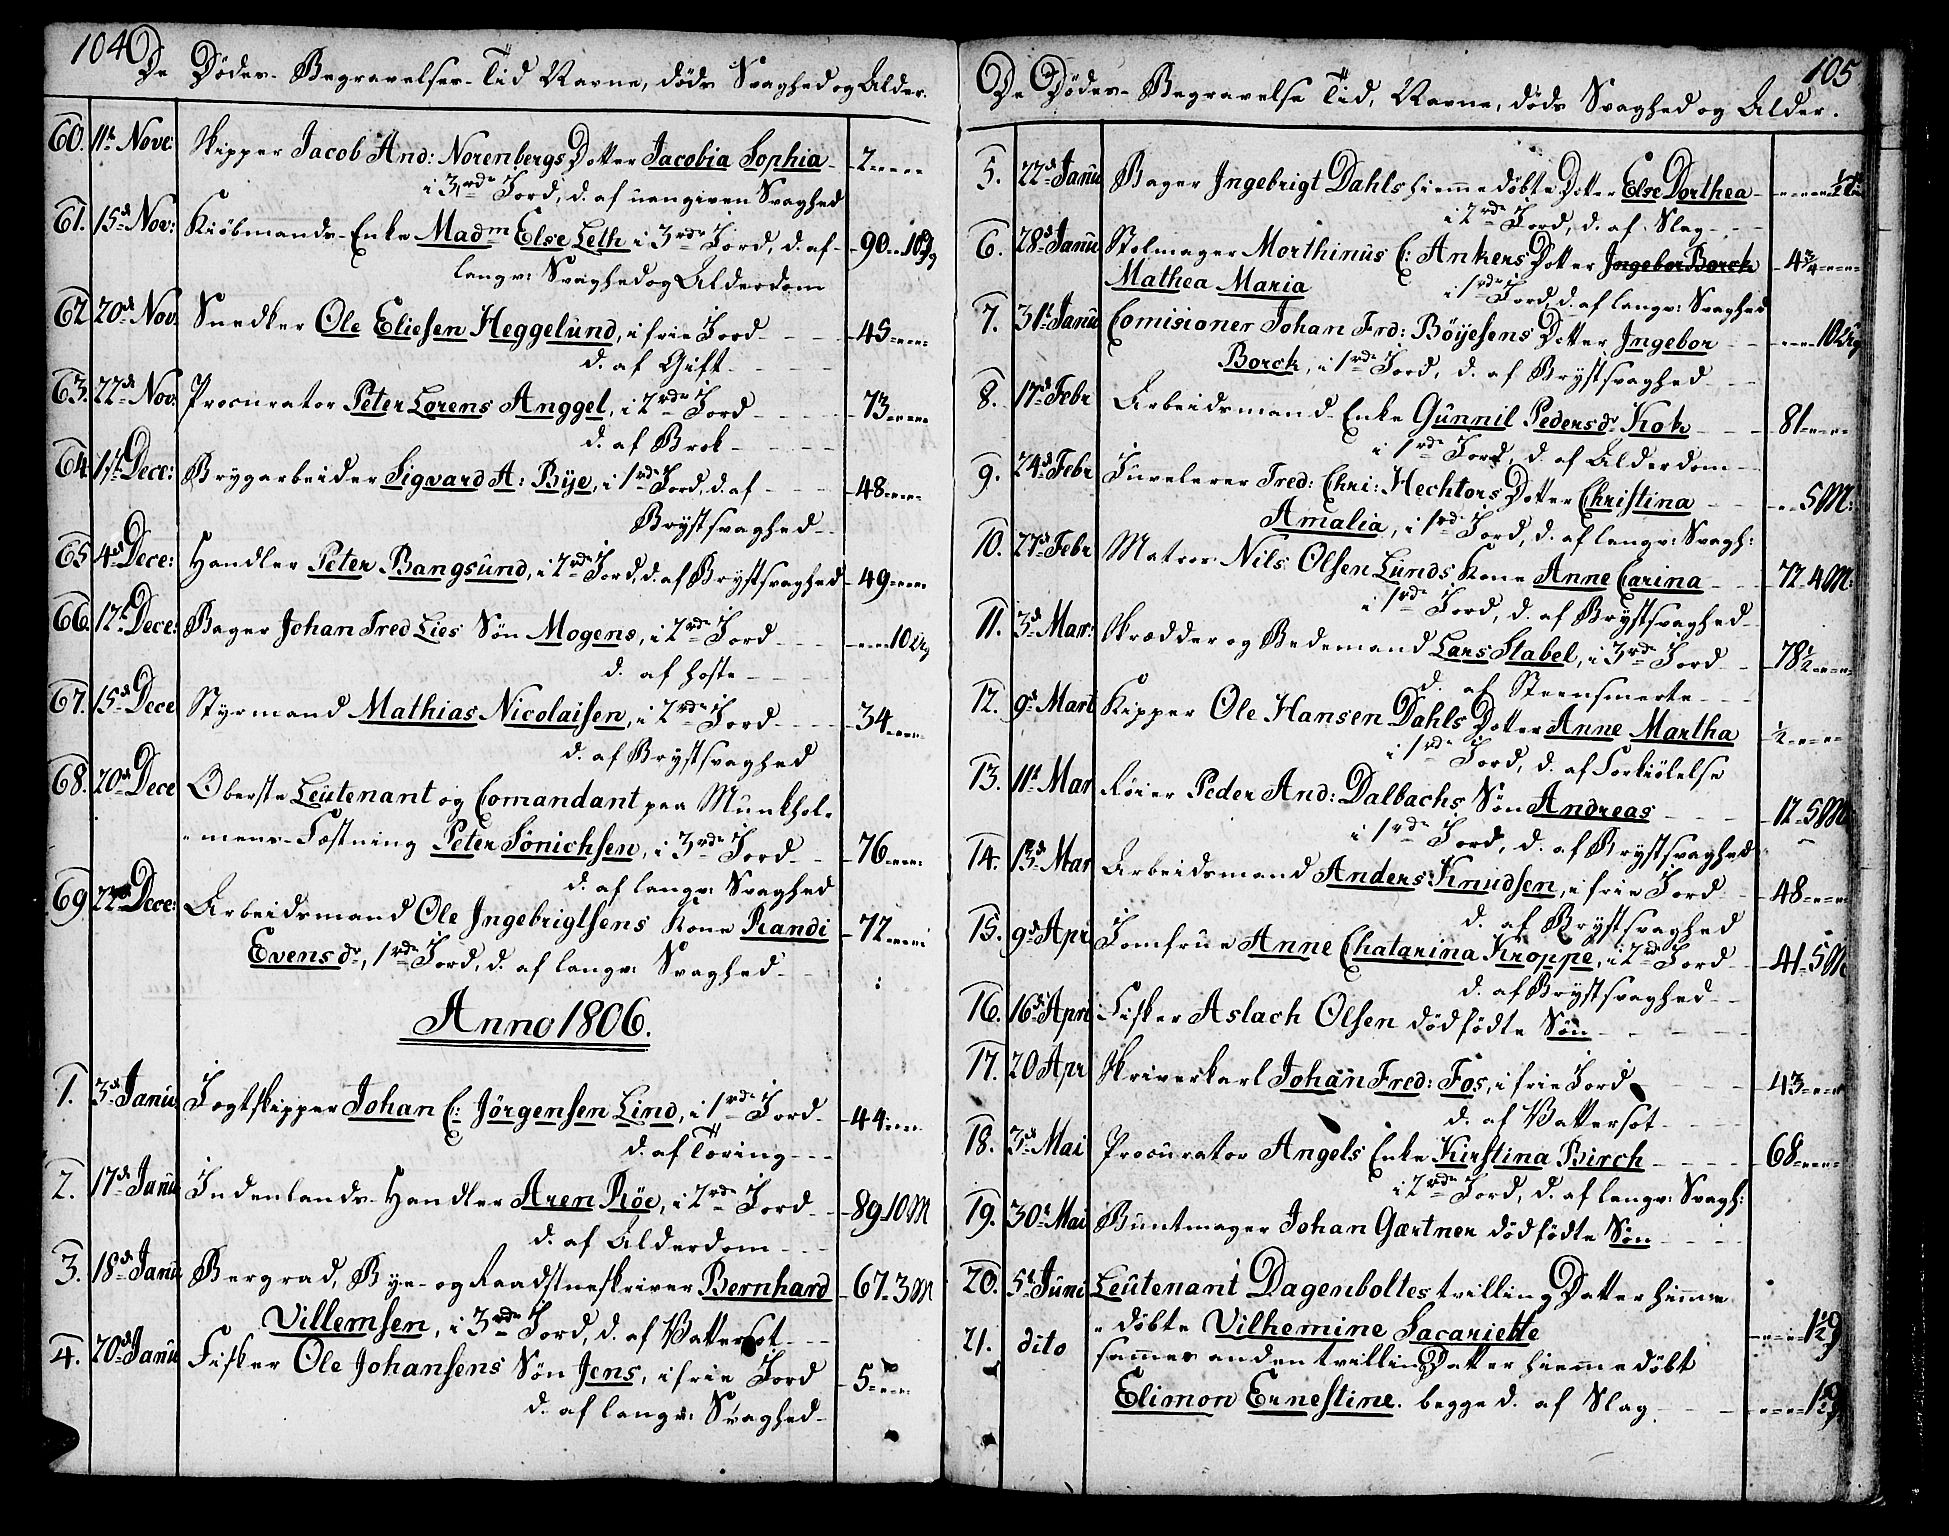 104
De Dødes Begravelses Tid Navne, døds Svaghed og Alder.
60. 11t Nove: Skipper Jacob And: Norenbergs Dotter Jacobia Sophia 2
i 3rde Jord, d. af uangiven Svaghed
61. 15d Nov: Kiøbmands Enke Madm Else Leth i 3rde Jord, d. af 90
langv: Svaghed og Alderdom
62 20d Nov. Snedker Ole Eliesen Heggelund, i frie Jord 45
d. af Gift
63. 22de Nov. Procurator Peter Lorens Anggel, i 2rde Jord 73
d. af Brok
64 1st Dece: Brygarbeider Sigvard A: Bÿe, i 1rde Jord, d. af 48
Brÿstsvaghed
65 4d Dece: Handler Peter Bangsund, i 2rde Jord, d. af Brÿstsvaghed 49
66. 12t Dece: Bager Johan Fred Lies Søn Mogens, i 2rde Jord 10 Ug
d. af Hoste
67. 15d Dece Styrmand Mathias Nicolaisen, i 2rde Jord 34
d. af Brÿstsvaghed
68. 20d Dece Oberste Leutenant og Comandant paa Munkhol-
mens Fæstning Peter Sönichsen, i 3rde Jord 76
d. af langv: Svaghed
69 22d Dece: Arbeidsmand Ole Ingebrigtsens Kone Randi 72
Evensdr, 1rde Jord, d. af langv: Svaghed
Anno 1806.
1. 3d Janu. Jogtskipper Johan C: Jörgensen Lind, i 1rde Jord 44
d. af Tæring
2. 17d Janu Indenlands Handler Aren Röe, i 2rde Jord 89 10 M
d. af Alderdom
3. 18d Janu Bergrad, Bye- og Raadstueskriver Bernhard 67 3 M
Villemsen, i 3rde Jord, d. af Vattersot
4. 20d Janu Fisker Ole Johansens Søn Jens, i frie Jord 5
d. af langv: Svaghed
105
De Dødes Begravelse Tid, Navne, døds Svaghed og Alder.
5. 22d Janu Bager Ingebrigt Dahls hiemmedøbte Dotter Else Dorthea
i 2rde Jord, d. af Slag
6. 28d Janu Stolmager Morthinus C: Ankers Dotter Ingebor Borch 4 3/4
Mathea Maria i 1rde Jord, d. af langv: Svaghed
7. 31t Janu Comisioner Johan Frd: Böÿesens Dotter Ingebor 10 Ug
Borch, i 1rde Jord, d. af Brÿstsvaghed
8. 17d Febr Arbeidsmand Enke Gunnil Pedersdr Kok 81
i 1rde Jord, d. af Alderdom
9. 24d Febr Juvelerer Fred: Chri: Hechtors Dotter Christina 5 M:
Amalia, i 1rde Jord, d. af langv: Svagh:
10. 27d Febr Matros Nils Olsen Lunds Kone Anne Carina 72 4 M:
i 1rde Jord, d. af Brÿstsvaghed
11. 3d Mar: Skrædder og Bedemand Lars Stabel, i 3rde Jord 78 1/2
d. af Steensmerte
12. 9d Mart Skipper Ole Hansen Dahls Dotter Anne Martha 1/2
i 1rde Jord, d. af Forkiølelse
13. 11t Mar Röier Peder And: Dalbachs Søn Andreas 12 5 M
i 1rde Jord, d. af Brÿstsvaghed
14. 13d Mar Arbeidsmand Anders Knudsen, i frie Jord 48
d. af Brÿstsvaghed
15. 9d Apr Jomfrue Anne Chatarina Kroppe, i 2rde Jord 41 5 M
d. af Brÿstsvaghed
16. 16d Apri Fisker Aslach Olsen dödfödte Søn
17. 20 Apr Skriverkarl Johan Fred: Fos, i frie Jord 43
d. af Vattersot
18. 3d Mai Procurator Angels Enke Kirstina Birch 68
i 2rde Jord, d. af langv: Svagh:
19. 30t Mai Buntmager Johan Gærtner dödfödte Søn
20. 5t Juni Leutenant Dagenboltes tvilling Datter hiemme
døbte Vilhemine Jacariette
21. dito sammes anden tvilling Datter hiemmedøbt
Elimon Ernestine. begge d. af Slag